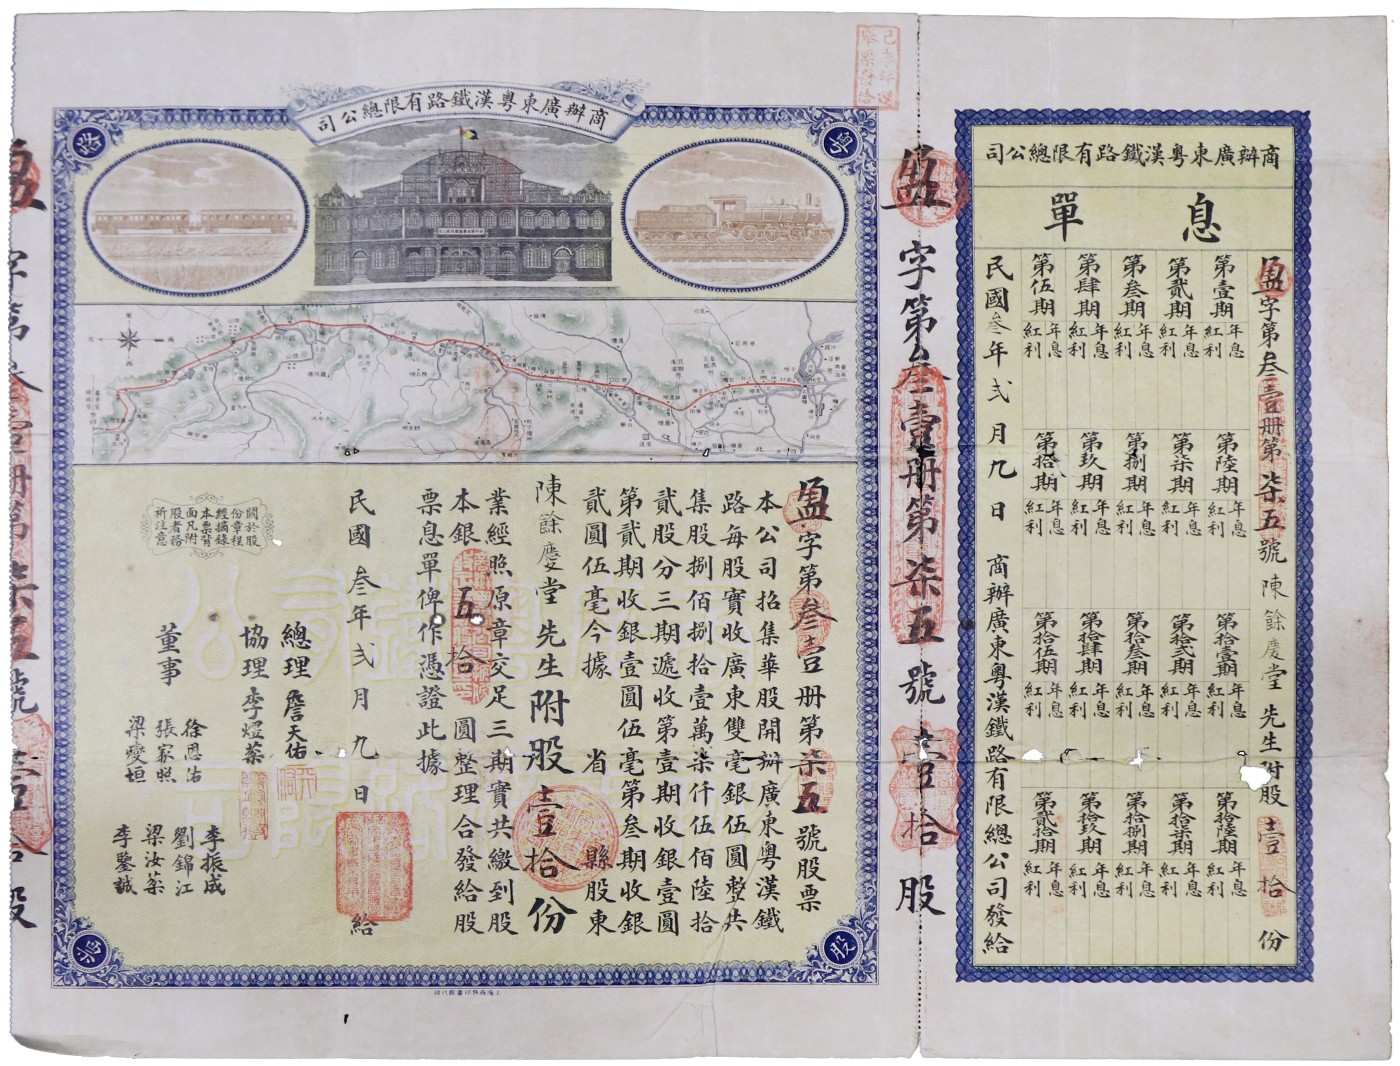 商辦廣東粵漢鐵路有限總公司
粵
路
股
票
盈字第叄壹册第柒五號股票
本公司招集華股開辦廣東粵漢鐵
路每股實收廣東雙毫銀伍圓整共
集股捌佰捌拾壹萬柒仟伍佰陸拾
貳股分三期遞收第壹期收銀壹圓
第貳期收銀壹圓伍毫第叄期收銀
貳圓伍毫今據 省 縣股東
陳餘慶堂先生附股壹拾份
業經照原章交足三期實共繳到股
本銀五拾圓整理合發給股
票息單俾作憑證此據
民國叁年弍月九日給
關於股
份章程
經摘錄
本票背
面凡附
股者務
祈注意
總理 詹天佑
協理 李煜棻
董事
徐恩沾
張家照
梁燮垣
李振成
劉錦江
梁汝棻
李鑒誠
上海商務印書館代印
盈字第叁壹册第柒五號壹拾股
商辦廣東粵漢鐵路有限總公司
息單
盈字第叁壹册第柒五號陳餘慶堂先生附股壹拾份
第壹期 年息 紅利
第貳期 年息 紅利
第叁期 年息 紅利
第肆期 年息 紅利
第伍期 年息 紅利
第陸期 年息 紅利
第柒期 年息 紅利
第捌期 年息 紅利
第玖期 年息 紅利
第拾期 年息 紅利
第拾壹期 年息 紅利
第拾貳期 年息 紅利
第拾叁期 年息 紅利
第拾肆期 年息 紅利
第拾伍期 年息 紅利
第拾陸期 年息 紅利
第拾柒期 年息 紅利
第拾捌期 年息 紅利
第拾玖期 年息 紅利
第貳拾期 年息 紅利
民國叁年弍月九日 商辦廣東粵漢鐵路有限總公司發給